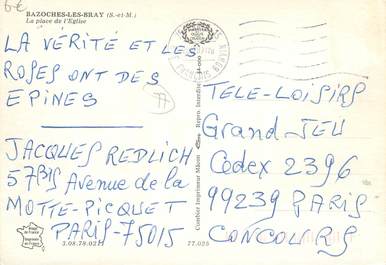 6€
BAZOCHES-LES-BRAY (S.-et-M.)
La place de l'Eglise
LA VÉRITÉ ET LES
ROSES ONT DES
EPINES
JACQUES REDLICH
57BIS Avenue de la
MOTTE-PICQUET
PARIS-75015
3.08.78.0211
Combier Imprimeur Mâcon
Repro Interdite
77.025
TELE-LOISIRS
Grand-JEU
Codex 2396
99239 PARIS
CONCOURS